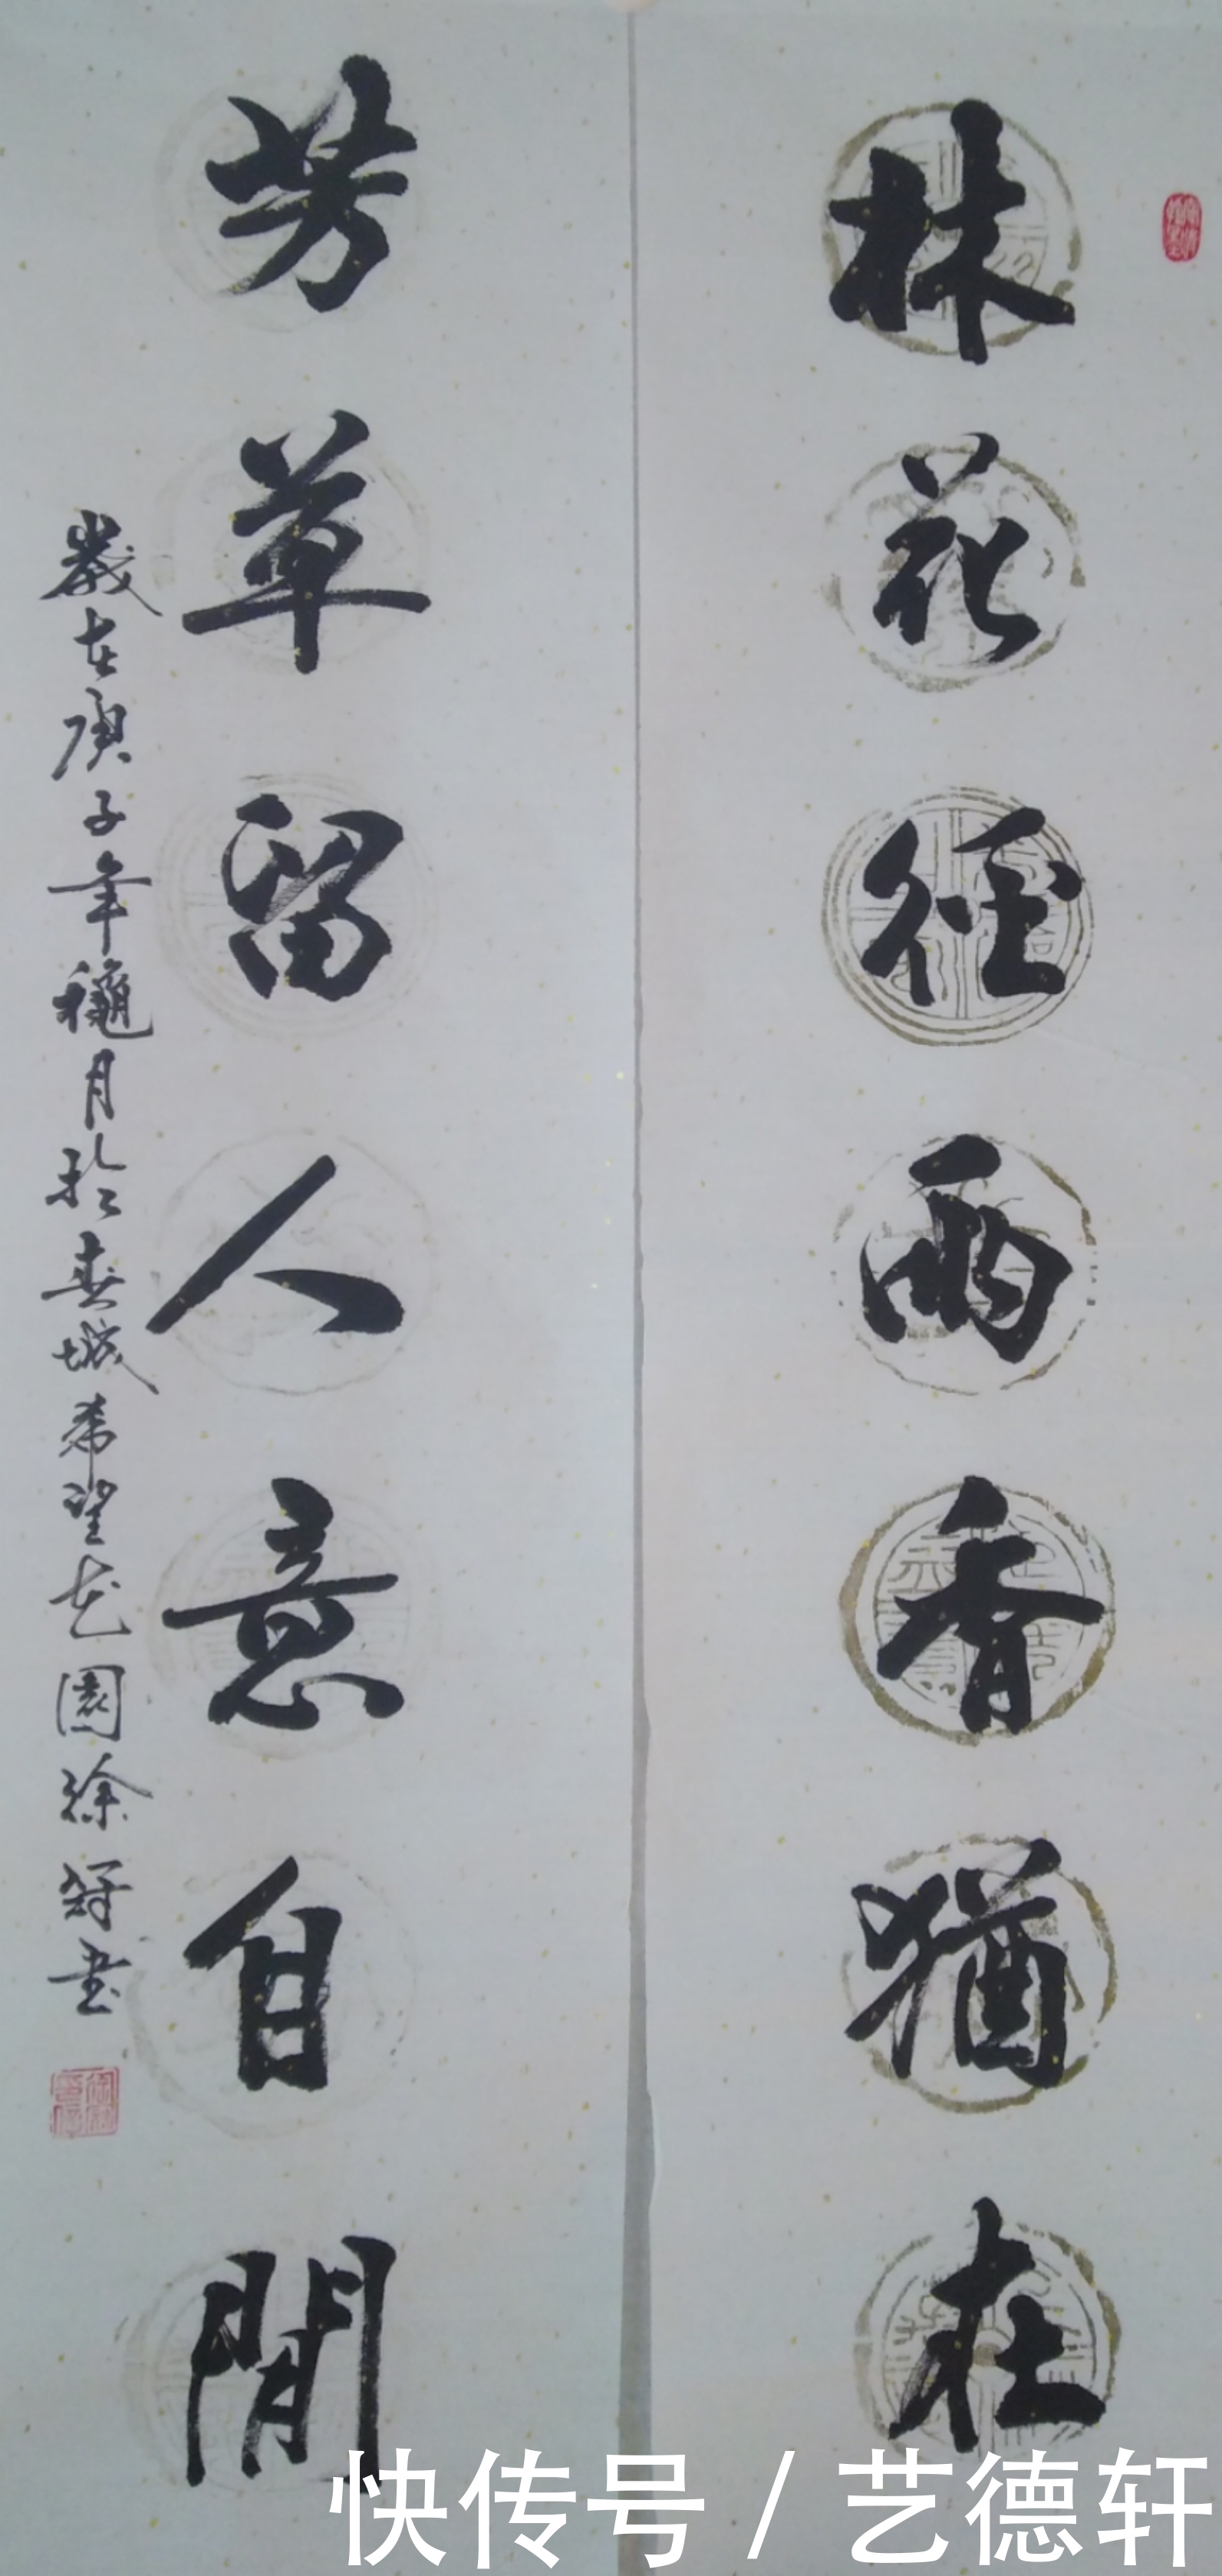 林花經雨香猶在
芳草留人意自閒
歲在庚子年龝月於春城希望花園徐書
快传号/艺德轩